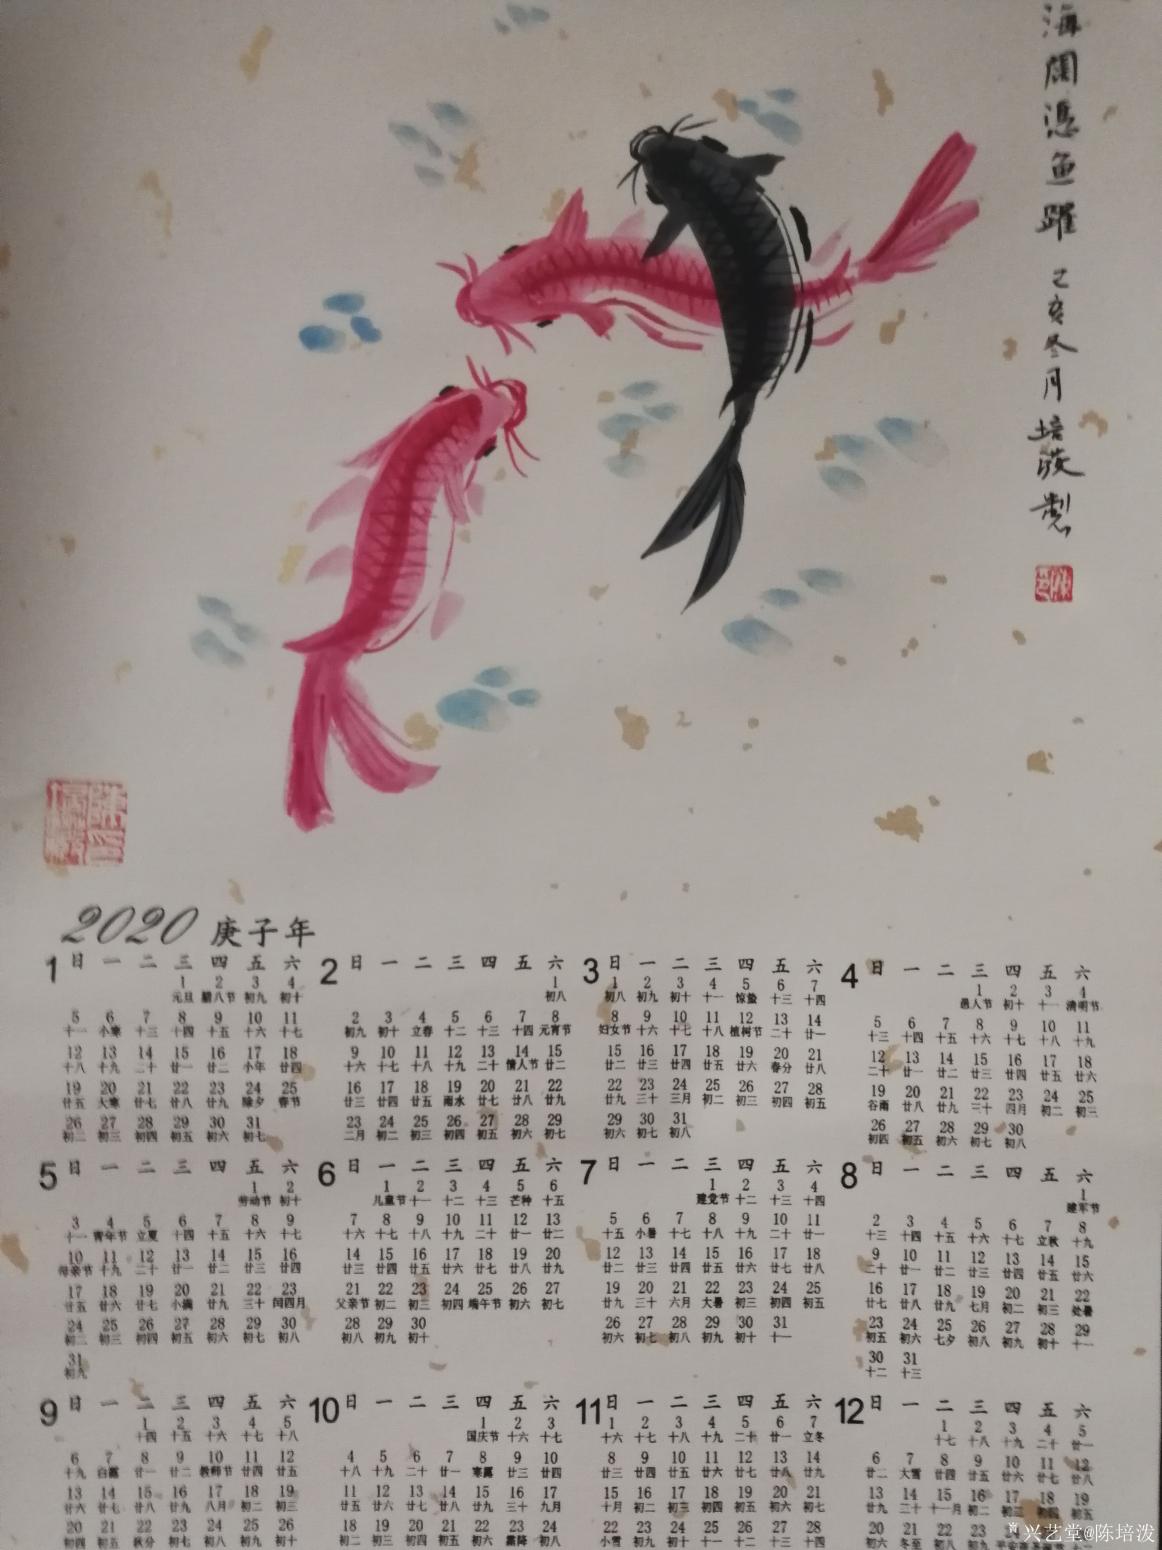 海闊憑魚躍 己亥冬月 培潑製
2020 庚子年
1
日 一 二 三 四 五 六
1 2 3 4
元旦 腊八节 初九 初十
5 6 7 8 9 10 11
十一 小寒 十三 十四 十五 十六 十七
12 13 14 15 16 17 18
十八 十九 二十 廿一 廿二 小年 廿四
19 20 21 22 23 24 25
廿五 大寒 廿七 廿八 廿九 除夕 春节
26 27 28 29 30 31
初二 初三 初四 初五 初六 初七
2
日 一 二 三 四 五 六
1
初八
2 3 4 5 6 7 8
初九 初十 立春 十二 十三 十四 元宵节
9 10 11 12 13 14 15
十六 十七 十八 十九 二十 情人节 廿二
16 17 18 19 20 21 22
廿三 廿四 廿五 雨水 廿七 廿八 廿九
23 24 25 26 27 28 29
二月 初二 初三 初四 初五 初六 初七
3
日 一 二 三 四 五 六
1 2 3 4 5 6 7
初八 初九 初十 十一 惊蛰 十三 十四
8 9 10 11 12 13 14
妇女节 十六 十七 十八 植树节 二十 廿一
15 16 17 18 19 20 21
廿二 廿三 廿四 廿五 廿六 春分 廿八
22 23 24 25 26 27 28
廿九 三十 三月 初二 初三 初四 初五
29 30 31
初六 初七 初八
4
日 一 二 三 四 五 六
1 2 3 4
愚人节 初十 十一 清明节
5 6 7 8 9 10 11
十三 十四 十五 十六 十七 十八 十九
12 13 14 15 16 17 18
二十 廿一 廿二 廿三 廿四 廿五 廿六
19 20 21 22 23 24 25
谷雨 廿八 廿九 三十 四月 初二 初三
26 27 28 29 30
初四 初五 初六 初七 初八
5
日 一 二 三 四 五 六
1 2
劳动节 初十
3 4 5 6 7 8 9
十一 青年节 立夏 十四 十五 十六 十七
10 11 12 13 14 15 16
母亲节 十九 二十 廿一 廿二 廿三 廿四
17 18 19 20 21 22 23
廿五 廿六 廿七 小满 廿九 三十 闰四月
24 25 26 27 28 29 30
初二 初三 初四 初五 初六 初七 初八
31
初九
6
日 一 二 三 四 五 六
1 2 3 4 5 6
儿童节 十一 十二 十三 芒种 十五
7 8 9 10 11 12 13
十六 十七 十八 十九 二十 廿一 廿二
14 15 16 17 18 19 20
廿三 廿四 廿五 廿六 廿七 廿八 廿九
21 22 23 24 25 26 27
父亲节 初二 初三 初四 端午节 初六 初七
28 29 30
初八 初九 初十
7
日 一 二 三 四 五 六
1 2 3 4
建党节 十二 十三 十四
5 6 7 8 9 10 11
十五 小暑 十七 十八 十九 二十 廿一
12 13 14 15 16 17 18
廿二 廿三 廿四 廿五 廿六 廿七 廿八
19 20 21 22 23 24 25
廿九 三十 六月 大暑 初三 初四 初五
26 27 28 29 30 31
初六 初七 初八 初九 初十 十一
8
日 一 二 三 四 五 六
1
建军节
2 3 4 5 6 7 8
十三 十四 十五 十六 十七 立秋 十九
9 10 11 12 13 14 15
二十 廿一 廿二 廿三 廿四 廿五 廿六
16 17 18 19 20 21 22
廿七 廿八 廿九 七月 初二 初三 处暑
23 24 25 26 27 28 29
初五 初六 七夕 初八 初九 初十 十一
30 31
十二 十三
9
日 一 二 三 四 五 六
1 2 3 4 5
十四 十五 十六 十七 十八
6 7 8 9 10 11 12
十九 白露 廿一 廿二 教师节 廿四 廿五
13 14 15 16 17 18 19
廿六 廿七 廿八 廿九 八月 初二 初三
20 21 22 23 24 25 26
初四 初五 秋分 初七 初八 初九 初十
10
日 一 二 三 四 五 六
1 2 3
国庆节 十六 十七
4 5 6 7 8 9 10
十八 十九 二十 廿一 寒露 廿三 廿四
11 12 13 14 15 16 17
廿五 廿六 廿七 廿八 廿九 三十 九月
18 19 20 21 22 23 24
初二 初三 初四 初五 初六 霜降 初八
11
日 一 二 三 四 五 六
1 2 3 4 5 6 7
十六 十七 十八 十九 二十 廿一 立冬
8 9 10 11 12 13 14
廿三 廿四 廿五 廿六 廿七 廿八 廿九
15 16 17 18 19 20 21
十月 初二 初三 初四 初五 初六 初七
22 23 24 25 26 27 28
小雪 初九 初十 十一 十二 十三 十四
12
日 一 二 三 四 五 六
1 2 3 4 5
十七 十八 十九 二十 廿一
6 7 8 9 10 11 12
廿二 大雪 廿四 廿五 廿六 廿七 廿八
13 14 15 16 17 18 19
廿九 三十 十一月 初二 初三 初四 初五
20 21 22 23 24
初六 冬至 初八 初九 平安夜
兴艺堂@陈培泼